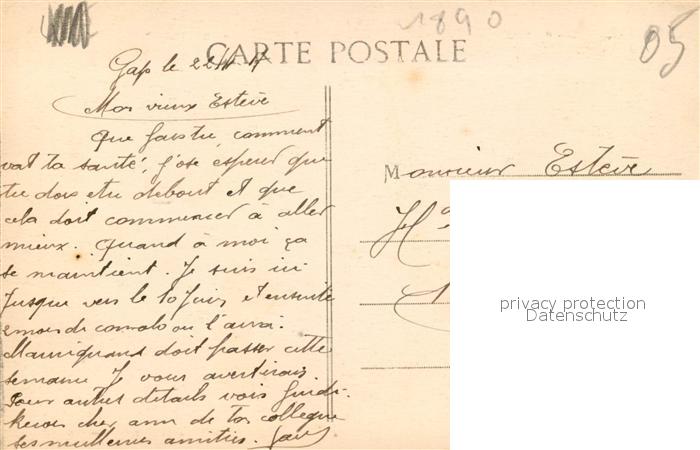 1890
05
CARTE POSTALE
Gap le 22
Mon vieux Estève
Que fais tu, comment
vat ta santé, j'ose esperer que
tu dois etre debout et que
cela doit commencer à aller
mieux. Quand à moi ça
se maintient. Je suis ici
jusque vers le 10 Juin, et ensuite
2 mois de convalo ou l'auxi.
doit passer cette
semaine Je vous avertirais.
Pour autres details vois
cher ami de ton collegue
ses meilleures amitiés.
Monsieur Estève
privacy protection
Datenschutz